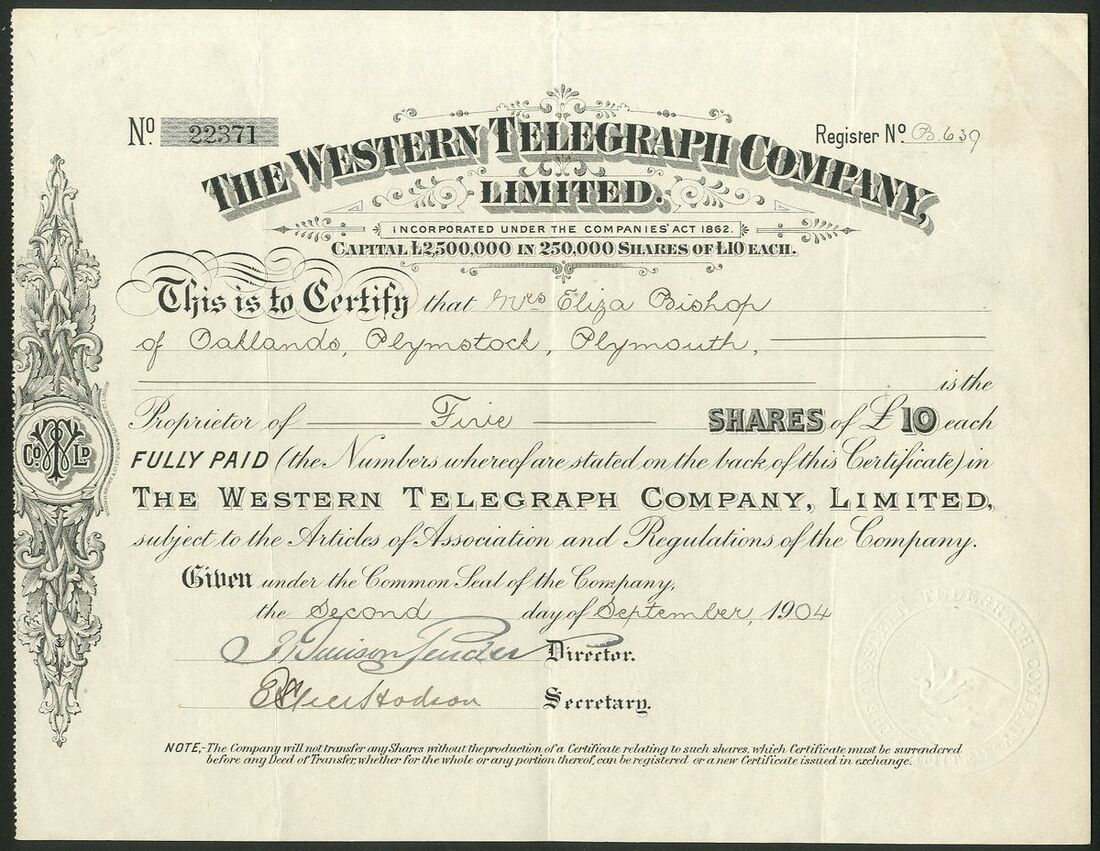 No 22371
Register No. B.639
THE WESTERN TELEGRAPH COMPANY,
LIMITED.
INCORPORATED UNDER THE COMPANIES' ACT 1862.
CAPITAL £2,500,000 IN 250,000 SHARES OF £10 EACH.
This is to Certify that Mrs Eliza Bishop
of Oaklands, Plymstock, Plymouth,
is the
Proprietor of Five SHARES of £10 each
FULLY PAID (the Numbers whereof are stated on the back of this Certificate) in
THE WESTERN TELEGRAPH COMPANY, LIMITED,
subject to the Articles of Association and Regulations of the Company.
Given under the Common Seal of the Company,
the Second day of September, 1904
Denison Pender Director.
Hodson Secretary.
NOTE,-The Company will not transfer any Shares without the production of a Certificate relating to such shares, which Certificate must be surrendered
before any Deed of Transfer, whether for the whole or any portion thereof, can be registered or a new Certificate issued in exchange.
Co. WT Ld
WESTERN TELEGRAPH COMPANY LIMITED